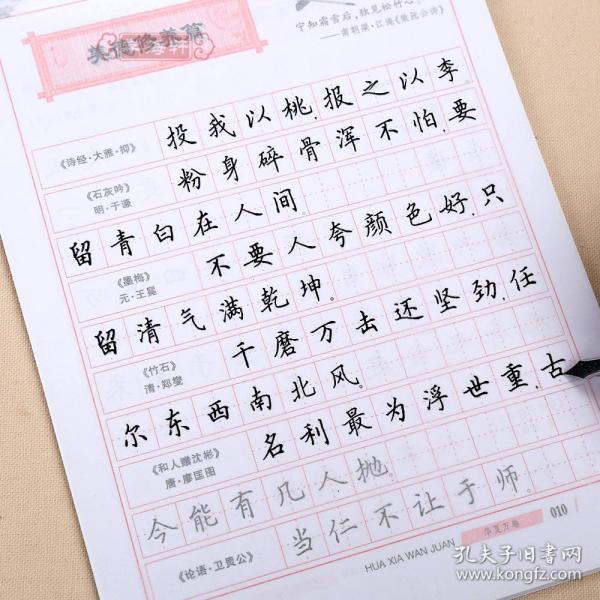 宁知霜雪后，独见松竹心。
——南朝梁·江淹《效阮公诗》
美德修养篇
《诗经·大雅·抑》
投我以桃，报之以李。
《石灰吟》
明·于谦
粉身碎骨浑不怕，要
留青白在人间。
《墨梅》
元·王冕
不要人夸颜色好，只
留清气满乾坤。
《竹石》
清·郑燮
千磨万击还坚劲，任
尔东西南北风。
《和人赠沈彬》
唐·廖匡图
名利最为浮世重，古
今能有几人抛。
《论语·卫灵公》
当仁不让于师。
HUA XIA WAN JUAN
华夏万卷
010
孔夫子旧书网
www.kongfz.com